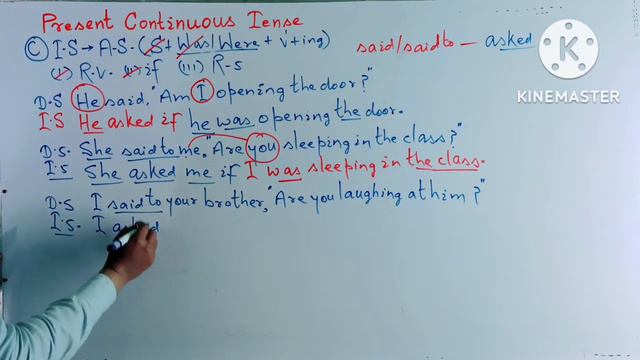 Present Continuous Tense
(C) I.S → A.S. (S + Was/Were + V + ing) said/said to — asked
(i) R.V. (ii) if (III) R-S
D.S He said, "Am I opening the door?"
I.S He asked if he was opening the door.
D.S. She said to me, "Are you sleeping in the class?"
I.S She asked me if I was sleeping in the class.
D.S I said to your brother, "Are you laughing at him?"
I.S. I asked
KINEMASTER